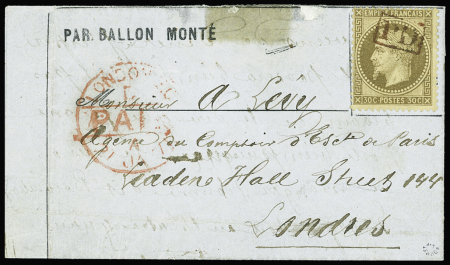 PAR BALLON MONTÉ
EMPIRE FRANÇAIS
30C POSTES 30C
LONDON
PAID
Monsieur A Lévy
Agence du Comptoir d'Escte de Paris
Leadene Hall Street 144
Londres